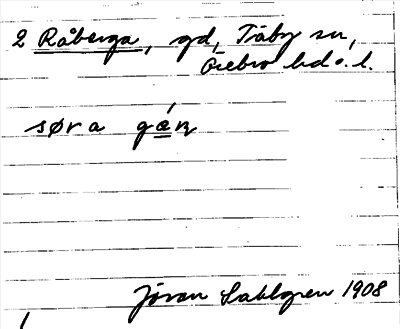 2 Råberga, gd, Täby sn,
Örebro hd o. l.
søra gán
Jöran Sahlgren 1908